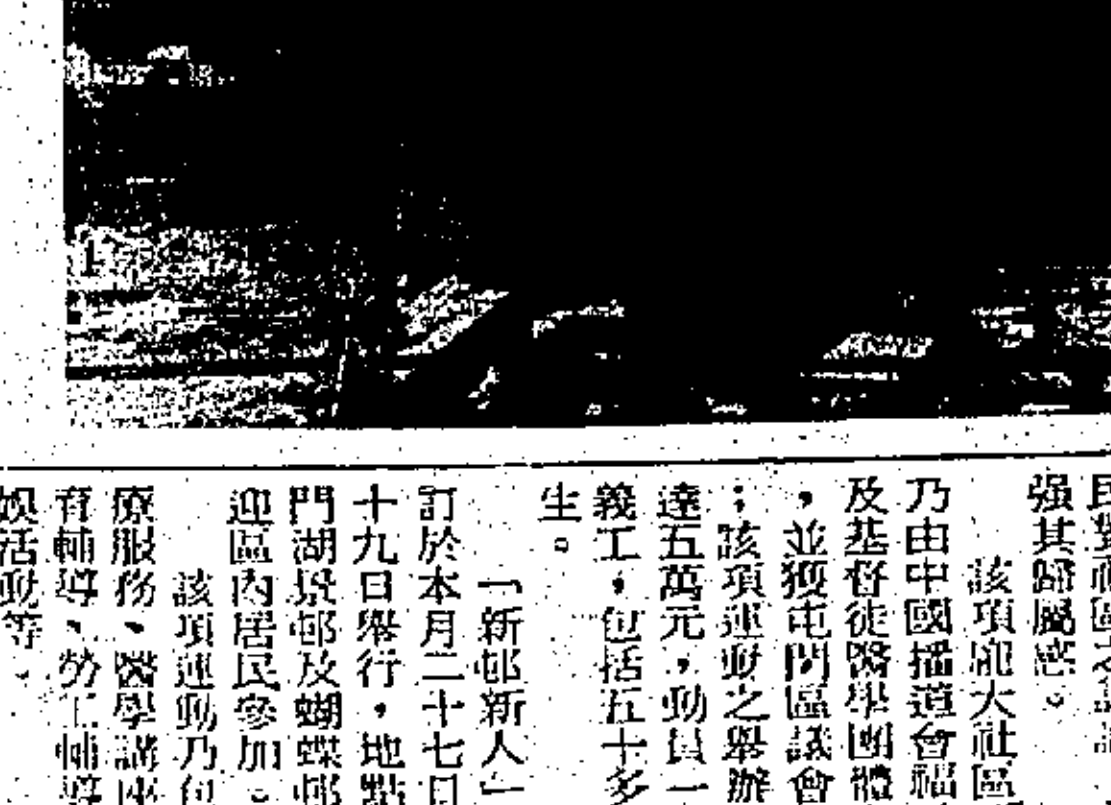 民對社區之
强其歸屬感。
該項龐大社區
乃由中國播道會福
及基督徒醫學團體
，並獲屯門區議會
；該項運動之舉辦
達五萬元，動員一
義工，包括五十多
生。
「新邨新人」
訂於本月二十七日
十九日舉行，地點
門湖景邨及蝴蝶邨
迎區內居民參加。
該項運動乃包
療服務、醫學講座
有輔導、勞工輔導
娛活動等。